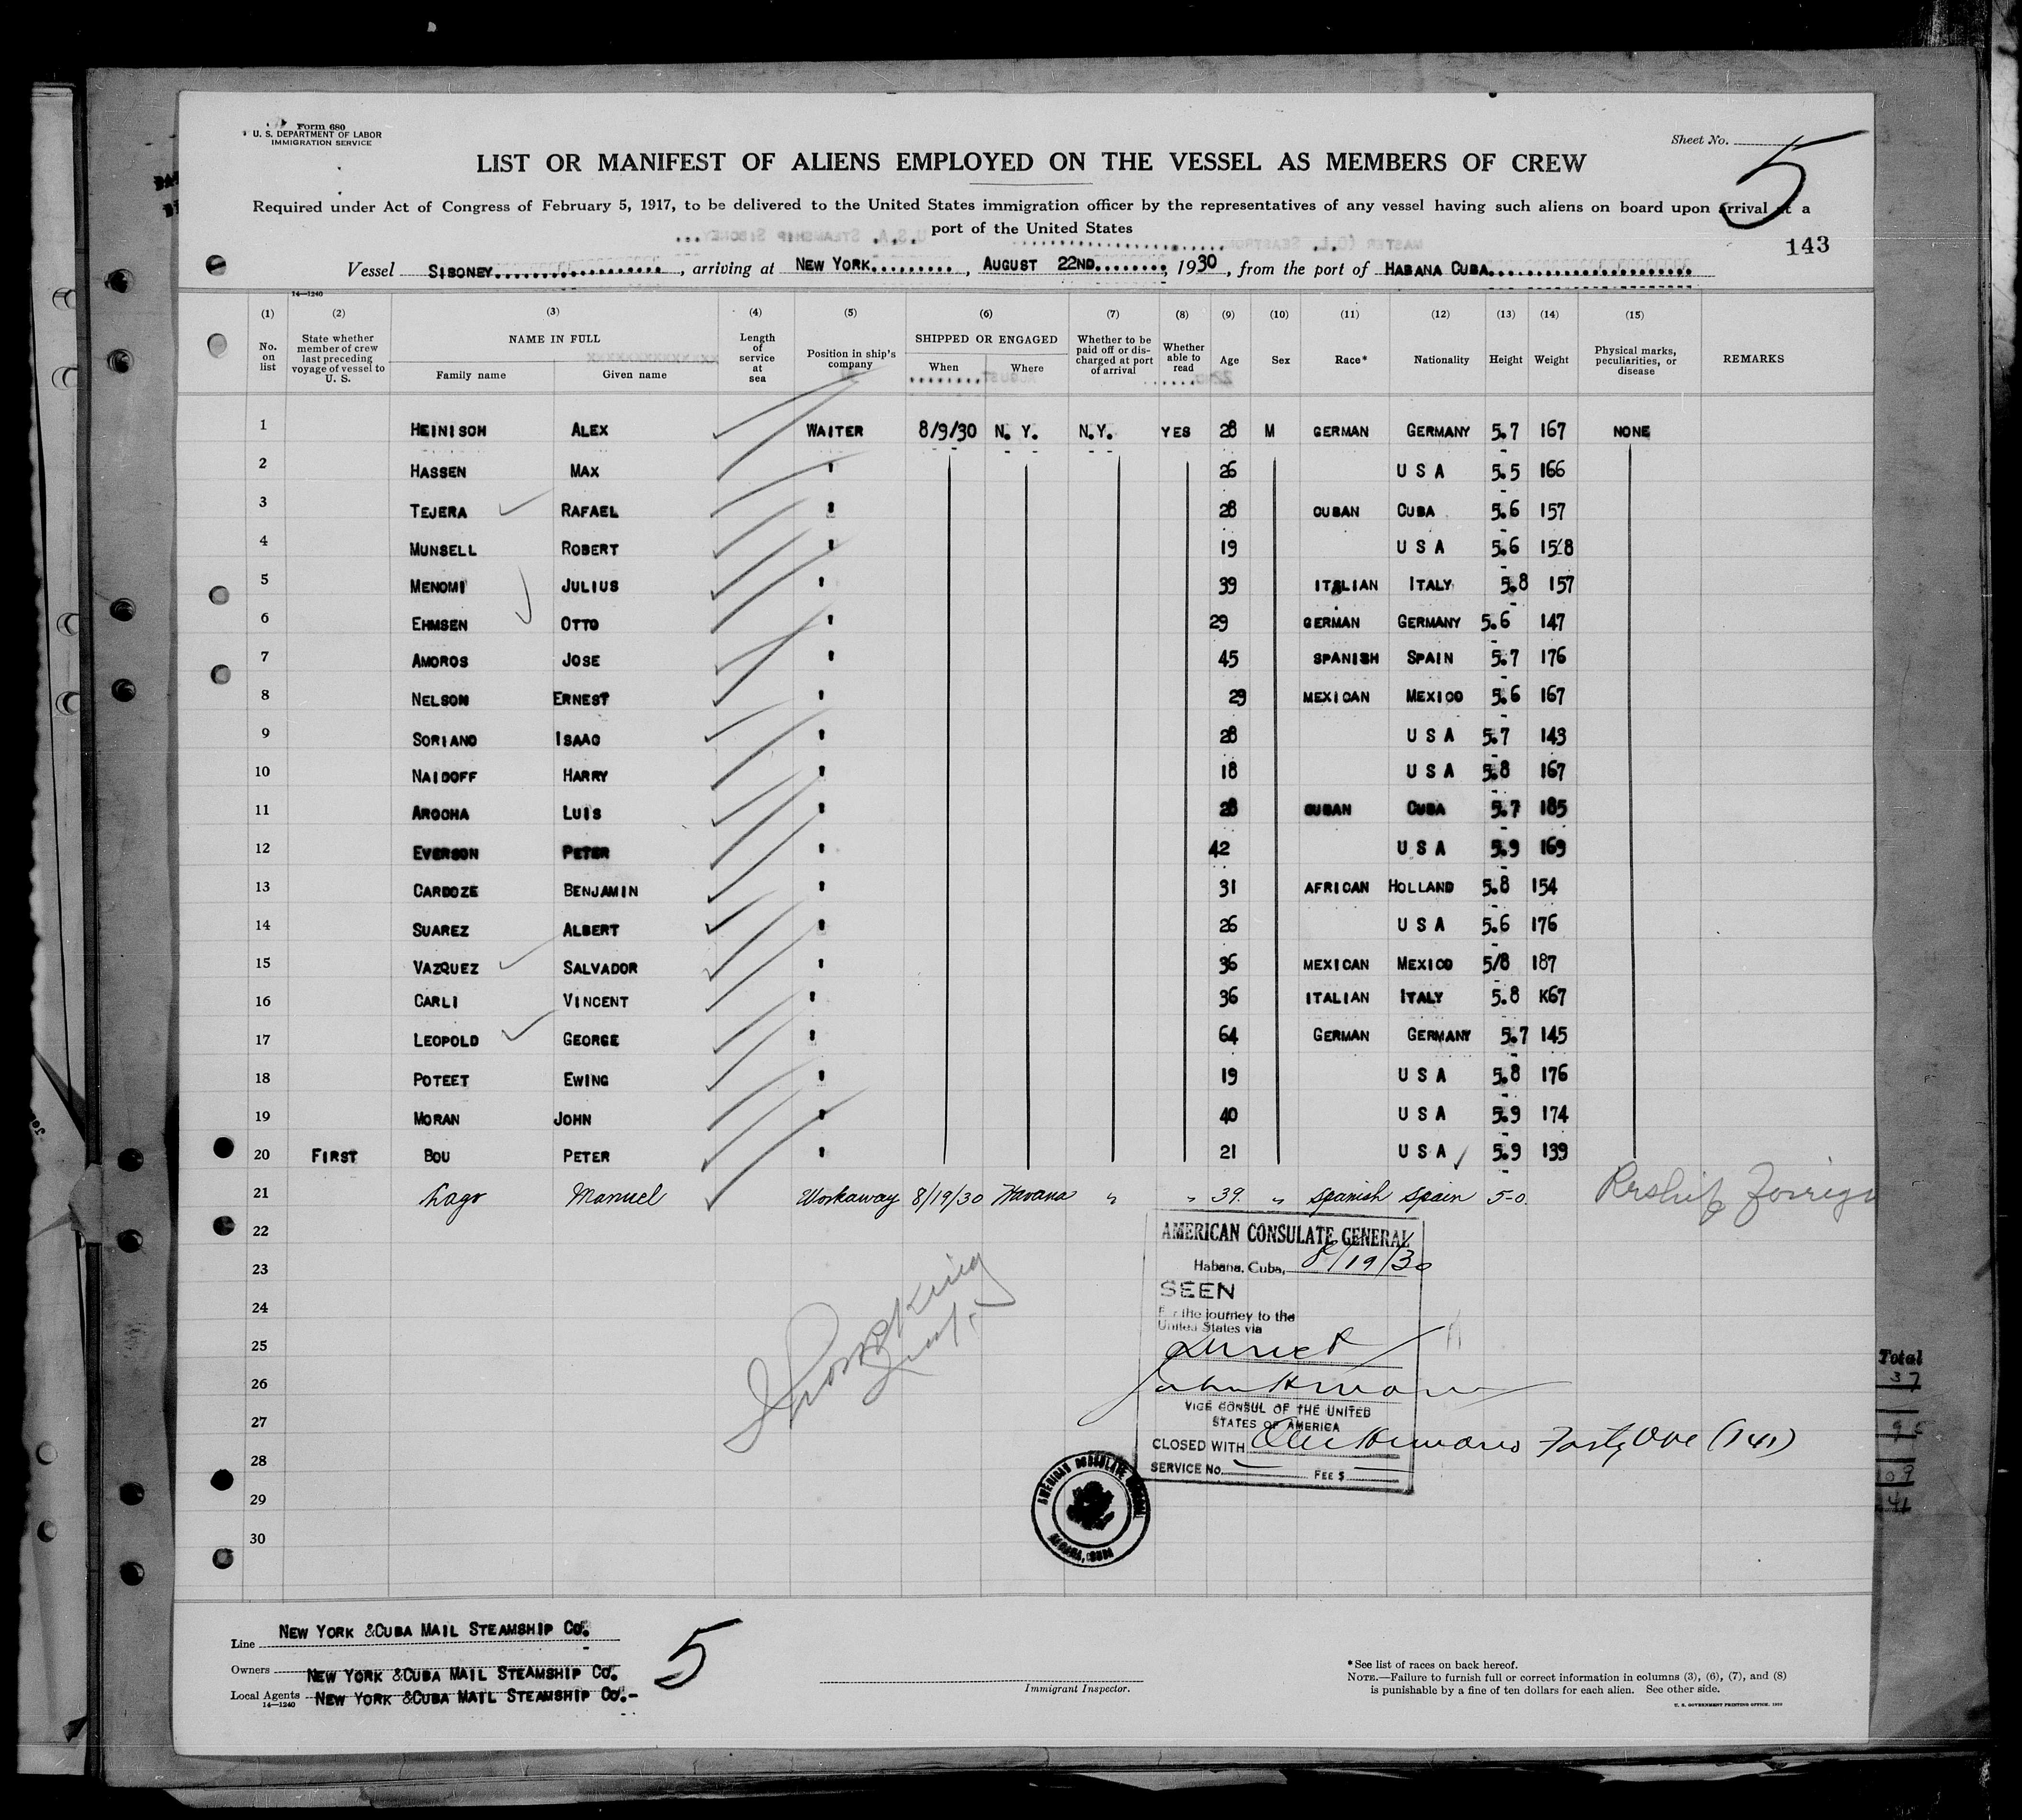 Form 680
U. S. DEPARTMENT OF LABOR
IMMIGRATION SERVICE
Sheet No. 5
LIST OR MANIFEST OF ALIENS EMPLOYED ON THE VESSEL AS MEMBERS OF CREW
Required under Act of Congress of February 5, 1917, to be delivered to the United States immigration officer by the representatives of any vessel having such aliens on board upon arrival at a
port of the United States
143
Vessel SIBONEY, arriving at NEW YORK, AUGUST 22ND, 1930, from the port of HABANA CUBA
14—1240
(1) (2) (3) (4) (5) (6) (7) (8) (9) (10) (11) (12) (13) (14) (15)
No. on list
State whether member of crew last preceding voyage of vessel to U. S.
NAME IN FULL
Family name Given name
Length of service at sea
Position in ship's company
SHIPPED OR ENGAGED
When Where
Whether to be paid off or discharged at port of arrival
Whether able to read
Age Sex Race* Nationality Height Weight
Physical marks, peculiarities, or disease
REMARKS
1 HEINISOH ALEX WAITER 8/9/30 N. Y. N.Y. YES 28 M GERMAN GERMANY 5.7 167 NONE
2 HASSEN MAX " 26 U S A 5.5 166
3 TEJERA RAFAEL " 28 CUBAN CUBA 5.6 157
4 MUNSELL ROBERT " 19 U S A 5.6 158
5 MENOMI JULIUS " 39 ITALIAN ITALY 5.8 157
6 EHMSEN OTTO " 29 GERMAN GERMANY 5.6 147
7 AMOROS JOSE " 45 SPANISH SPAIN 5.7 176
8 NELSON ERNEST " 29 MEXICAN MEXICO 5.6 167
9 SORIANO ISAAC " 28 U S A 5.7 143
10 NAIDOFF HARRY " 18 U S A 5.8 167
11 AROCHA LUIS " 28 CUBAN CUBA 5.7 185
12 EVERSON PETER " 42 U S A 5.9 169
13 CARDOZE BENJAMIN " 31 AFRICAN HOLLAND 5.8 154
14 SUAREZ ALBERT " 26 U S A 5.6 176
15 VAZQUEZ SALVADOR " 36 MEXICAN MEXICO 5/8 187
16 CARLI VINCENT " 36 ITALIAN ITALY 5.8 K67
17 LEOPOLD GEORGE " 64 GERMAN GERMANY 5.7 145
18 POTEET EWING " 19 U S A 5.8 176
19 MORAN JOHN " 40 U S A 5.9 174
20 FIRST BOU PETER " 21 U S A 5.9 139
21 Lago Manuel Workaway 8/19/30 Havana " " 39. " Spanish Spain 5-0. Reship Foreign
22
23
24
25
26
27
28
29
30
AMERICAN CONSULATE GENERAL
Habana, Cuba, 8/19/30
SEEN
For the journey to the
United States via
Direct
VICE CONSUL OF THE UNITED
STATES OF AMERICA
CLOSED WITH One Hundred Forty One (141)
SERVICE No. FEE $
AMERICAN CONSULATE GENERAL
HABANA, CUBA
Total
37
Line NEW YORK &CUBA MAIL STEAMSHIP CO.
Owners NEW YORK &CUBA MAIL STEAMSHIP CO.
Local Agents NEW YORK &CUBA MAIL STEAMSHIP CO.-
14—1240
5
Immigrant Inspector.
*See list of races on back hereof.
NOTE.—Failure to furnish full or correct information in columns (3), (6), (7), and (8)
is punishable by a fine of ten dollars for each alien. See other side.
U. S. GOVERNMENT PRINTING OFFICE. 1929